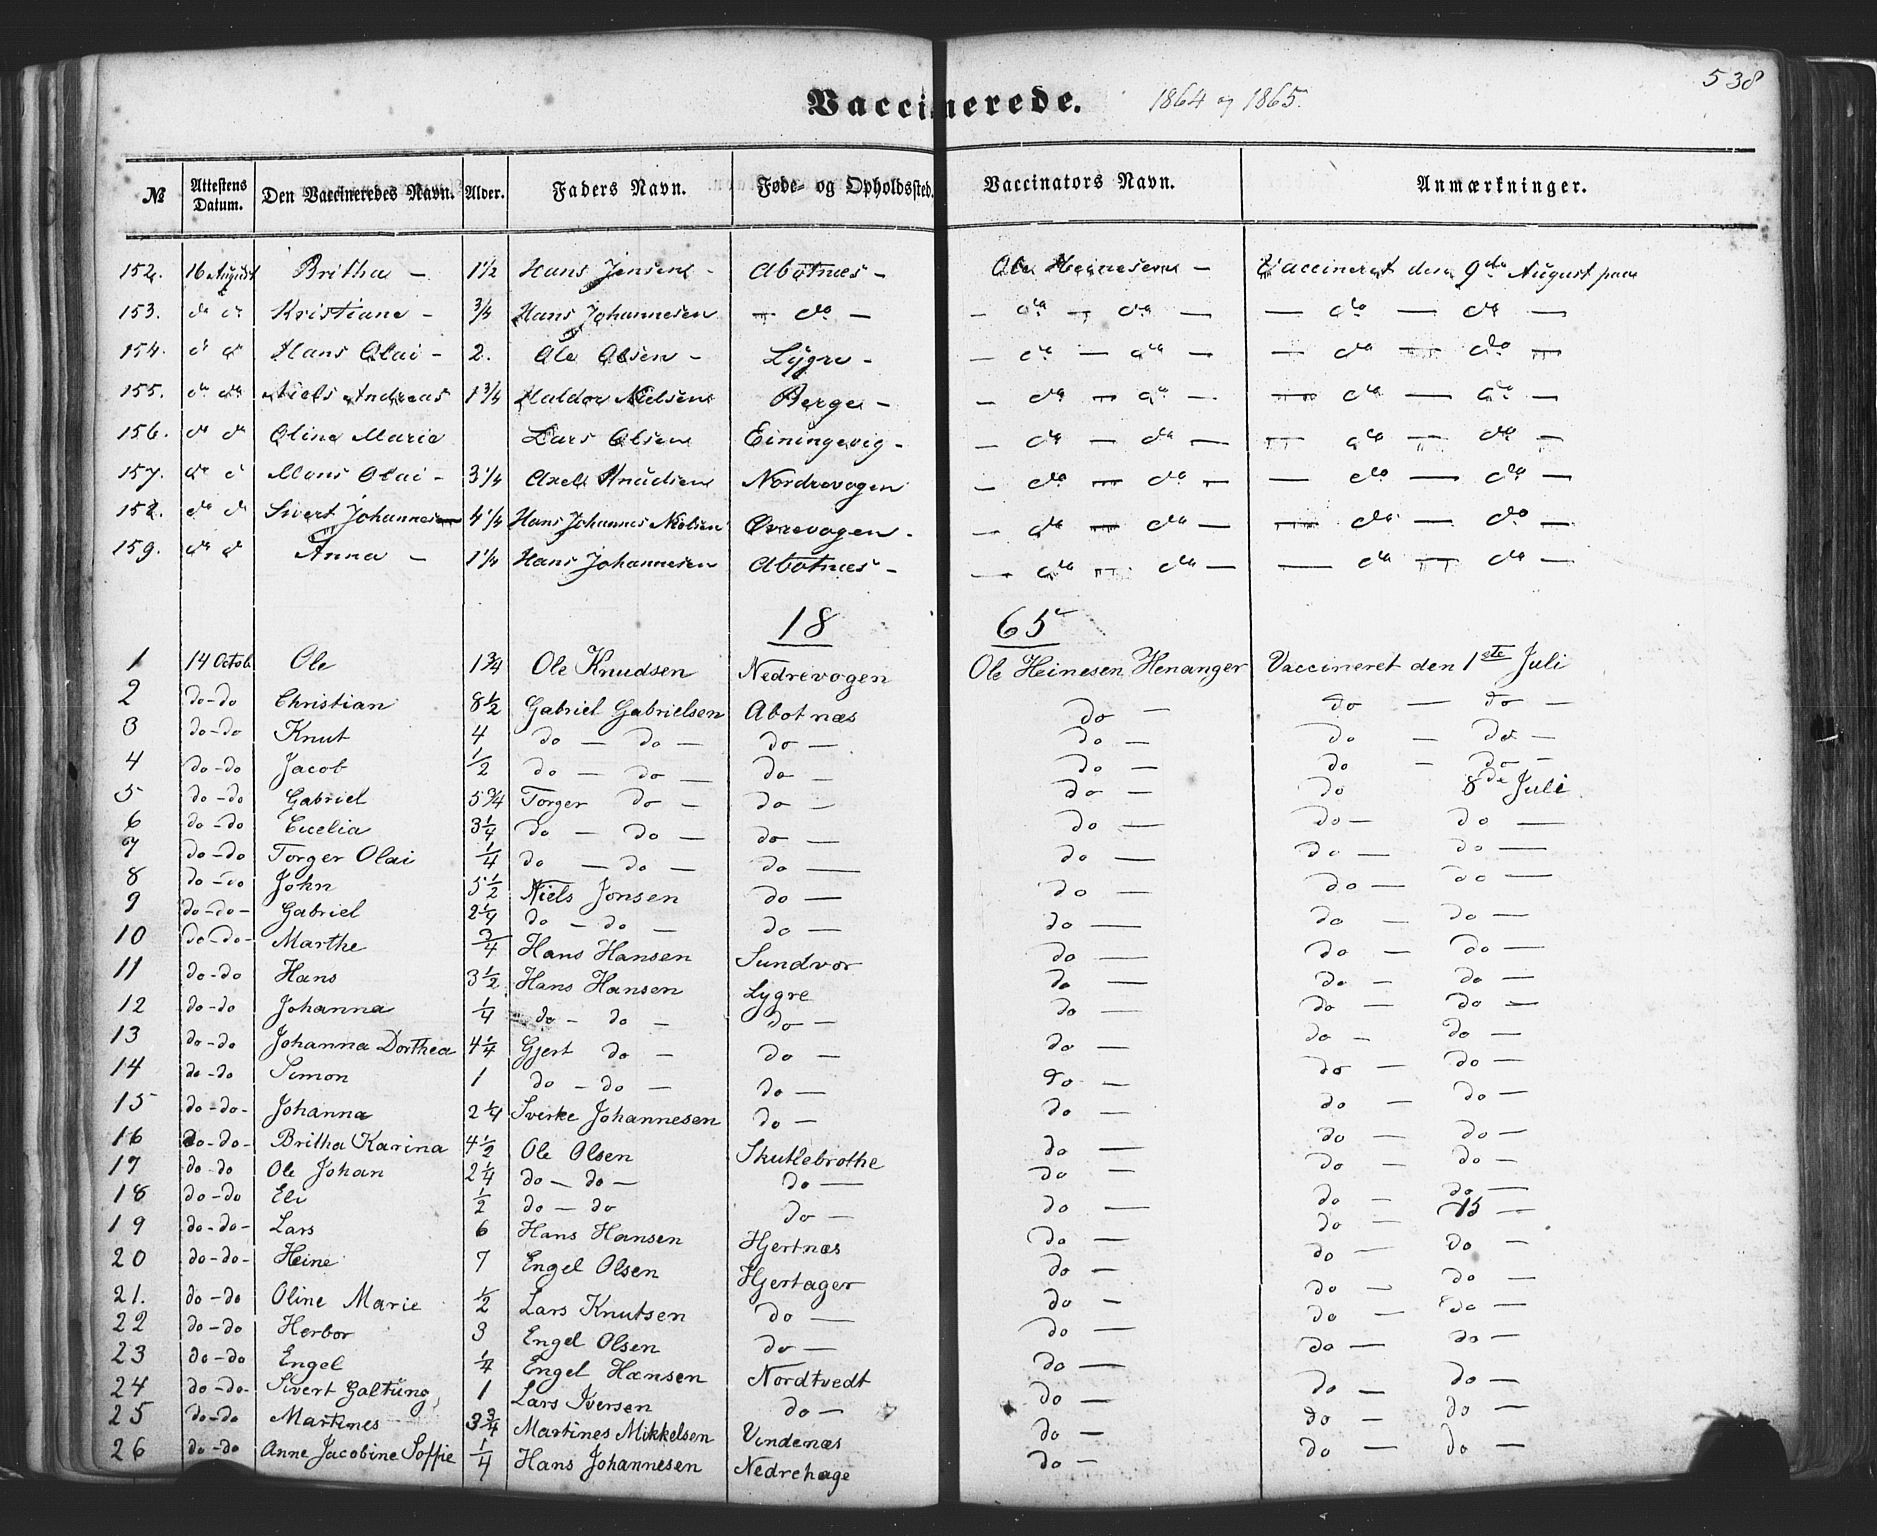 538
Vaccinerede. 1864 og 1865.
№ | Attestens Datum. | Den Vaccineredes Navn. | Alder. | Faders Navn. | Føde- og Opholdssted. | Vaccinators Navn. | Anmærkninger.
152. 16 August Britha - 1 1/2 Hans Jensen - Abotnæs - Ole Heinesen - Vaccineret den 9de August
153. do do Kristiane - 3/4 Hans Johannesen - do - - do - do - - do - do -
154. do do Hans Olai - 2. Ole Olsen - Lygre - - do - do - - do - do -
155. do do Niels Andreas 1 3/4 Haldor Nielsen Berge - - do - do - - do - do -
156. do do Oline Marie Lars Olsen Einingevig - - do - do - - do - do -
157. do do Mons Olai - 3 1/4 Axel Knudsen Nordrevogen - do - do - - do - do -
158. do do Sivert Johannes 4 1/4 Hans Johannes Nielsen Øvrevogen - - do - do - - do - do -
159. do do Anna - 1 1/4 Hans Johannesen Abotnæs - - do - do - - do - do -
18 65
1 14 Octob. Ole 1 3/4 Ole Knudsen Nedrevogen Ole Heinesen Henanger Vaccineret den 1ste Juli
2 do-do Christian 8 1/2 Gabriel Gabrielsen Abotnæs do - do - do -
3 do-do Knut 4 do - do - do - do - do - do -
4 do-do Jacob 1/2 do - do - do - do - do - do -
5 do-do Gabriel 5 3/4 Torger do - do - do - do 8de Juli
6 do-do Eucelia 3 1/4 do - do - do - do - do - do -
7 do-do Torger Olai 1/4 do - do - do - do - do - do -
8 do-do John 5 1/2 Niels Jonsen do - do - do - do -
9 do-do- Gabriel 2 1/4 do - do - do - do - do - do -
10 do-do- Marthe 3/4 Hans Hansen Sundvor do - do - do -
11 do-do Hans 3 1/2 Hans Hansen Lygre do - do - do -
12 do-do Johanna 1/4 do - do - do - do - do - do -
13 do-do Johanna Dorthea 4 1/4 Gjert do - do - do - do - do -
14 do-do Simon 1 do - do - do - do - do - do -
15 do-do- Johanna 2 1/4 Sverke Johannesen do - do - do - do -
16 do-do- Britha Karina 4 1/2 Ole Olsen Skutlebrothe do - do - do -
17 do-do Ole Johan 2 1/4 do - do - do - do - do - do -
18 do-do Eli 1/2 do - do do - do - do - do -
19 do-do- Lars 6 Hans Hansen Hjertnæs do - do - 15 -
20 do-do- Heine 7 Engel Olsen Hjertager do - do - do -
21. do-do Oline Marie 1/2 Lars Knutsen do - do - do - do -
22 do-do Herbor 3 Engel Olsen do - do - do - do -
23 do-do Engel 1/4 Engel Hansen Nordtvedt do - do - do -
24 do-do- Sivert Galtung, 1 Lars Iversen do - do - do - do -
25 do-do Martines 3 3/4 Martines Mikkelsen Vindenæs do - do - do -
26 do-do Anne Jacobine Soffie 1/4 Hans Johannesen Nedrehage do - do - do -